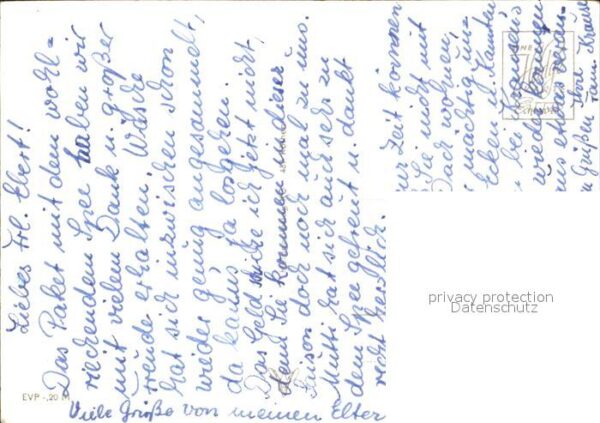 Liebes Frl. Ebert!
Das Paket mit dem wohl-
riechenden Spee haben wir
mit vielem Dank u. großer
Freude erhalten. Wäsche
hat sich inzwischen schon
wieder genug angesammelt,
da kanns ja losgehen.
Das Geld schicke ich jetzt nicht,
denn Sie kommen in dieser
Saison doch noch mal zu uns.
Mutti hat sich auch sehr zu
dem Spee gefreut u. dankt
recht herzlich.
Viele Grüße von meinen Elter
Zeit können
Sie nicht mit
wohnen,
mächtig
Ecken u. Kanten
bei
wieder
etwas
Grüßen Ihre
Fam. Krause
EVP -,20 M
privacy protection
Datenschutz